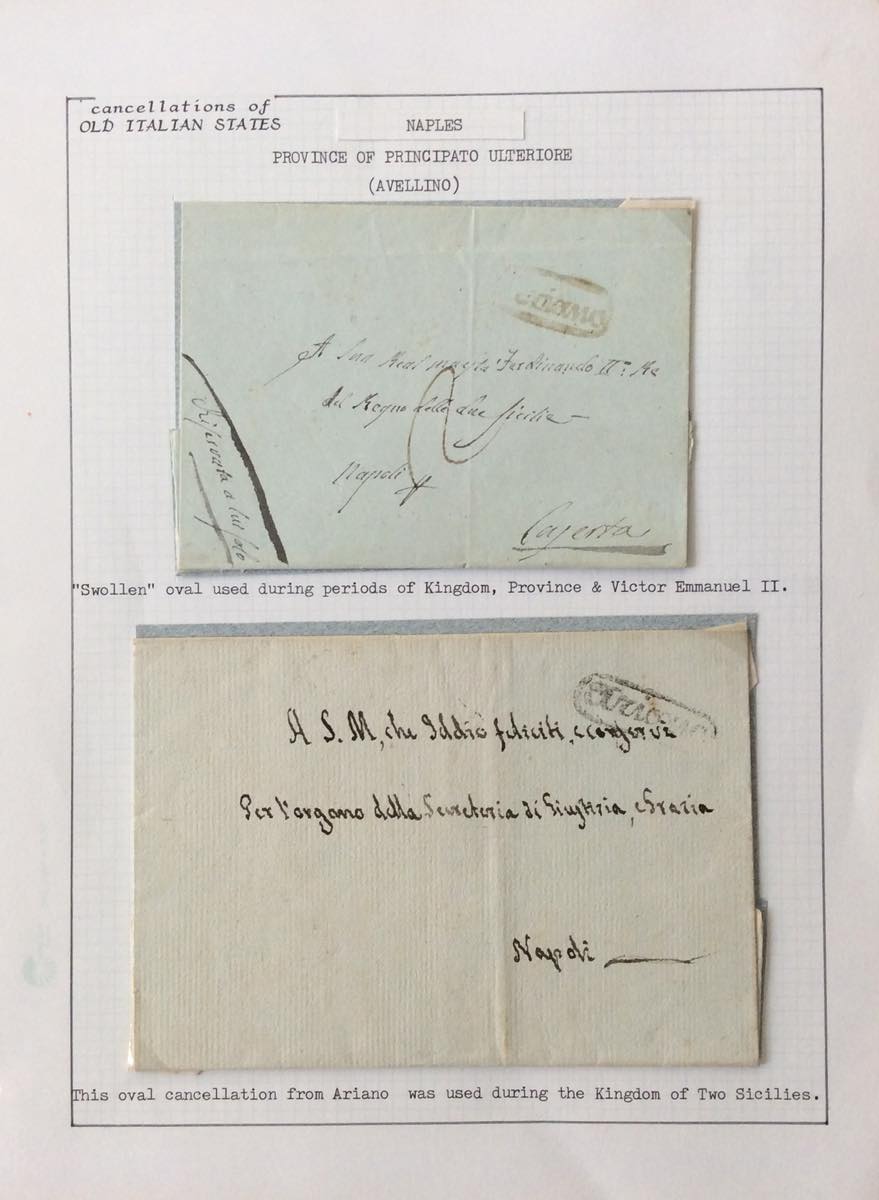 cancellations of
OLD ITALIAN STATES
NAPLES
PROVINCE OF PRINCIPATO ULTERIORE
(AVELLINO)
Ariano
A Sua Real Ferdinando II° Re
del Regno delle due Sicilie
Napoli
Caserta
Riservata a lui solo
"Swollen" oval used during periods of Kingdom, Province & Victor Emmanuel II.
Ariano
A S. M, che Iddio feliciti, e conservi
Per l'organo della Secreteria di Giustizia, e Grazia
Napoli
This oval cancellation from Ariano was used during the Kingdom of Two Sicilies.